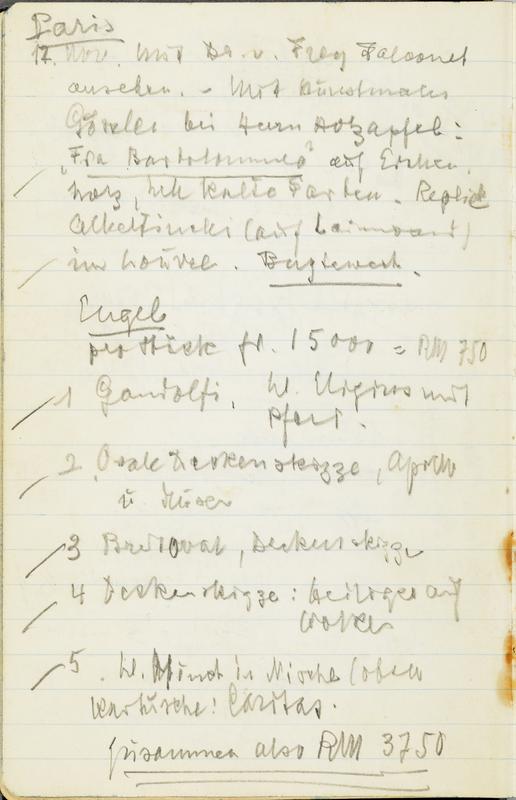 Paris
17. Nov. Mit Dr. v. Frey Falconet
ansehen. - Mit Kunstmaler
bei Herrn Holzapfel:
"Fra Bartolommeo" auf Eichen
holz, kalte Farben. Replik
(auf Leinwand)
im Louvre.
Engel
pro Stück fr. 15000 = RM 750
1 Gandolfi, hl. mit
Pferd.
2 Ovale Deckenskizze, Apollo
u Musen
3 Deckenskizze
4 Deckenskizze: Heiliger auf
Wolken
5. hl. Mönch in Nische (oben
Kartusche: Caritas.
zusammen also RM 3750